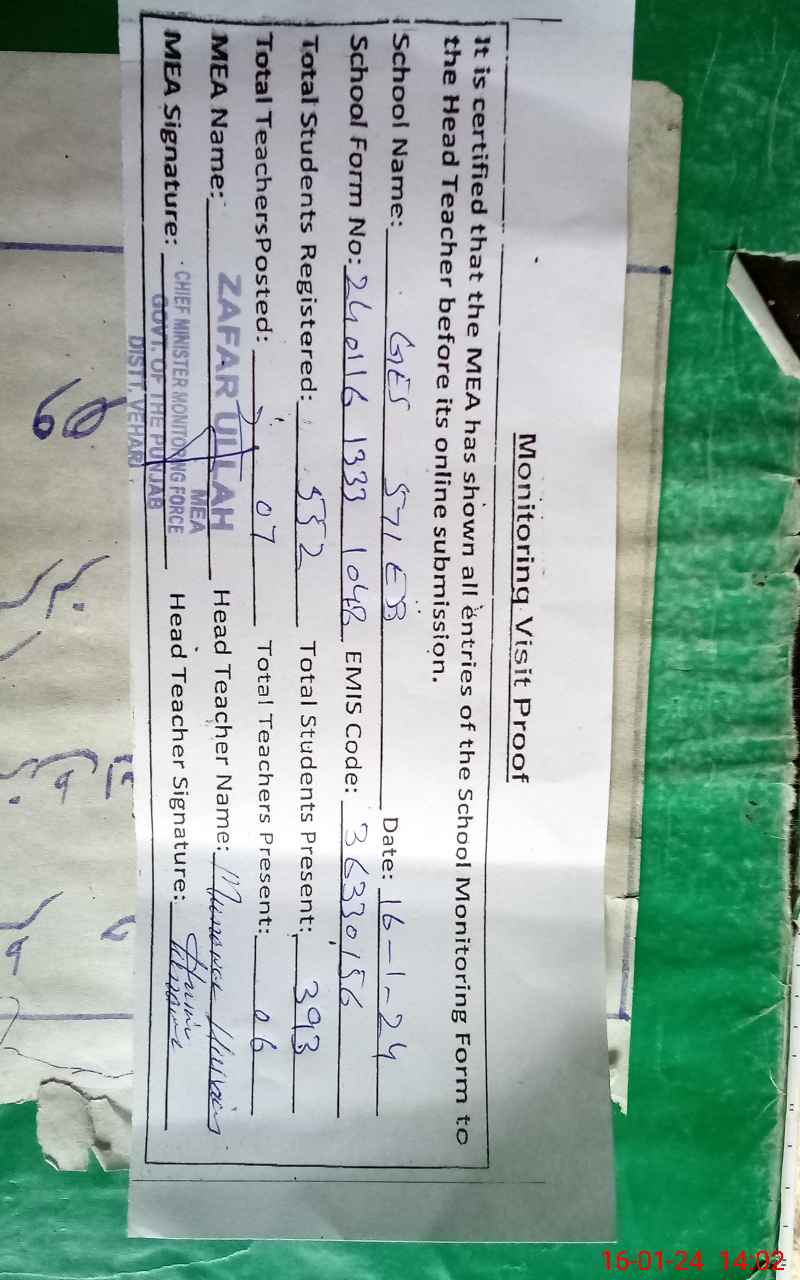 Monitoring Visit Proof
It is certified that the MEA has shown all entries of the School Monitoring Form to
the Head Teacher before its online submission.
School Name: GES 571 EB Date: 16-1-24
School Form No: 240116 1333 1048 EMIS Code: 36330156
Total Students Registered: 552 Total Students Present: 393
Total TeachersPosted: 07 Total Teachers Present: 06
MEA Name: ZAFAR ULLAH Head Teacher Name:
MEA
MEA Signature: Head Teacher Signature:
CHIEF MINISTER MONITORING FORCE
GOVT. OF THE PUNJAB
DISTT. VEHARI
16-01-24 14:02